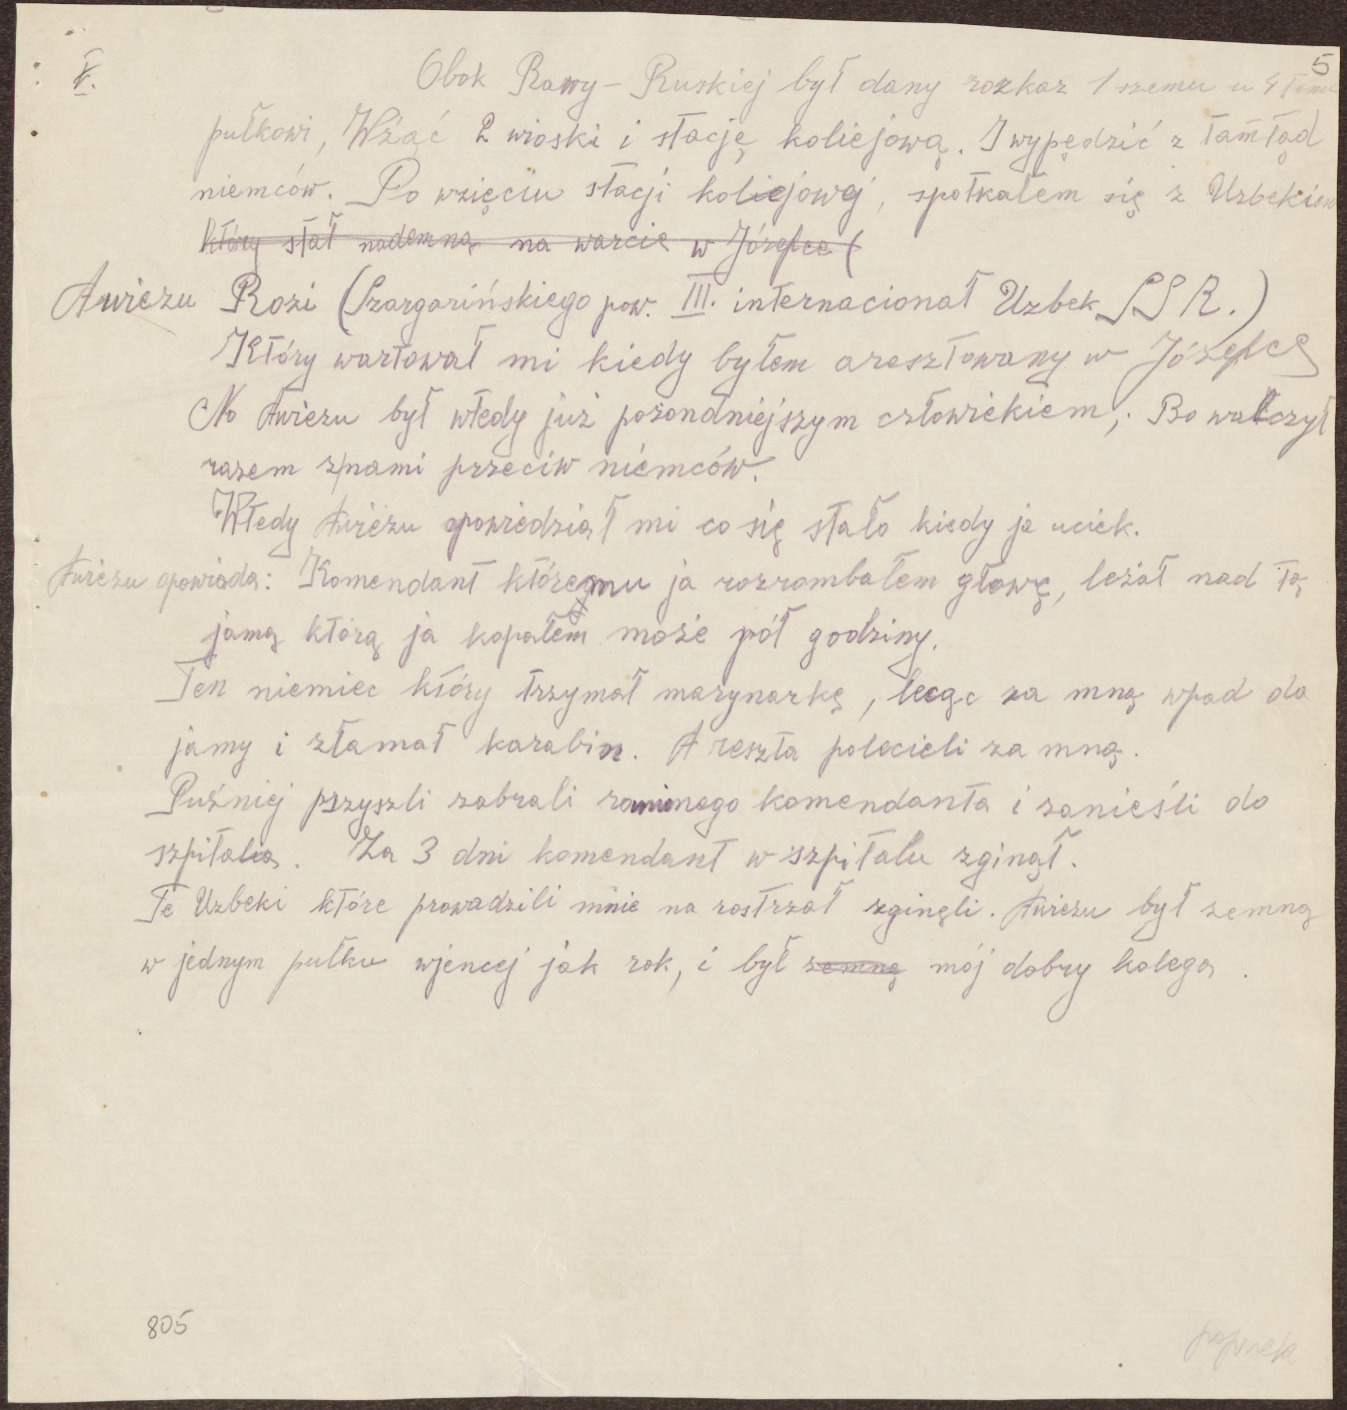 5
V.
Obok Rawy-Ruskiej był dany rozkaz 1szemu
pułkowi, Wźąć 2 wioski i stację koliejową. I wypędzić z tamtąd
niemców. Po wzięciu stacji koliejowej, spotkałem się z Uzbekiem
który stał nademną na warcie w Józefce (
Awiezu Rozi (Szargarińskiego pow. III. internacionał Uzbek SSR.)
Który wartował mi kiedy byłem aresztowany w Józefce
No Awiezu był wtedy już pożondniejszym człowiekiem, Bo walczył
razem z nami przeciw niemców.
Wtedy Awiezu opowiedział mi co się stało kiedy ja uciek.
Awiezu opowiada: Komendant któremu ja rozrombałem głowę, leżał nad tą
jamą którą ja kopałem może pół godziny.
Ten niemiec który trzymał marynarkę, lecąc za mną wpad do
jamy i złamał karabin. A reszta polecieli za mną.
Puźniej przyszli zabrali ranionego komendanta i zanieśli do
szpitala. Za 3 dni komendant w szpitalu zginął.
Te Uzbeki które prowadzili mnie na rostrzał zginęli. Awiezu był zemną
w jednym pułku wjencej jak rok, i był zemną mój dobry kolega.
805